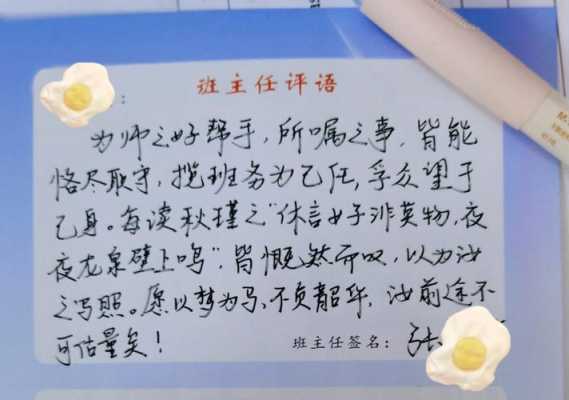 班主任评语
:
为师之好帮手，所嘱之事，皆能
恪尽职守，揽班务为己任，孚众望于
己身。每读秋瑾之“休言女子非英物，夜
夜龙泉壁上鸣”，皆慨然而叹，以为汝
之写照。愿以梦为马、不负韶华，汝前途不
可估量矣！
班主任签名：张